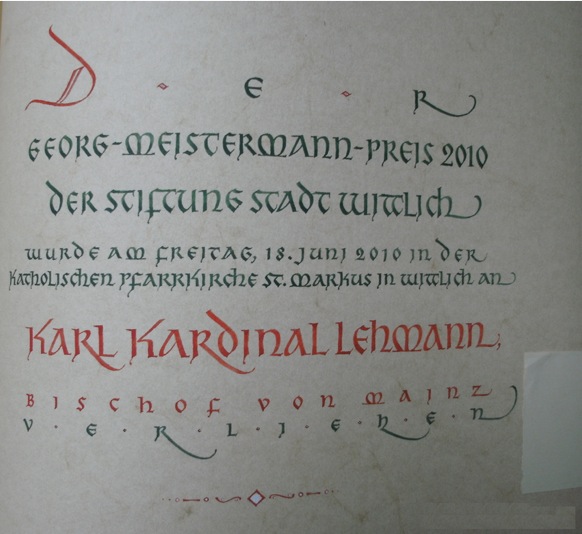 D · E · R
GEORG-MEISTERMANN-PREIS 2010
DER STIFTUNG STADT WITTLICH
WURDE AM FREITAG, 18. JUNI 2010 IN DER
KATHOLISCHEN PFARRKIRCHE ST. MARKUS IN WITTLICH AN
KARL KARDINAL LEHMANN,
BISCHOF VON MAINZ
V · E · R · L · I · E · H · E · N